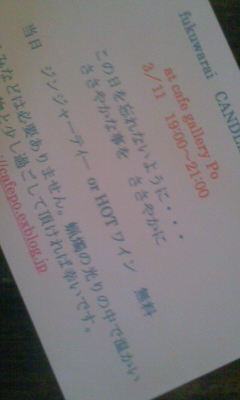 fukuwarai CANDLE
at cafe gallery Po
3/11 19:00~21:00
この日を忘れないように・・・
ささやかな事を ささやかに
当日 ジンジャーティー or HOTワイン 無料
みなどは必要ありません。蝋燭の光りの中で温かい
と少し過ごして頂ければ幸いです。
//cafepo.exblog.jp